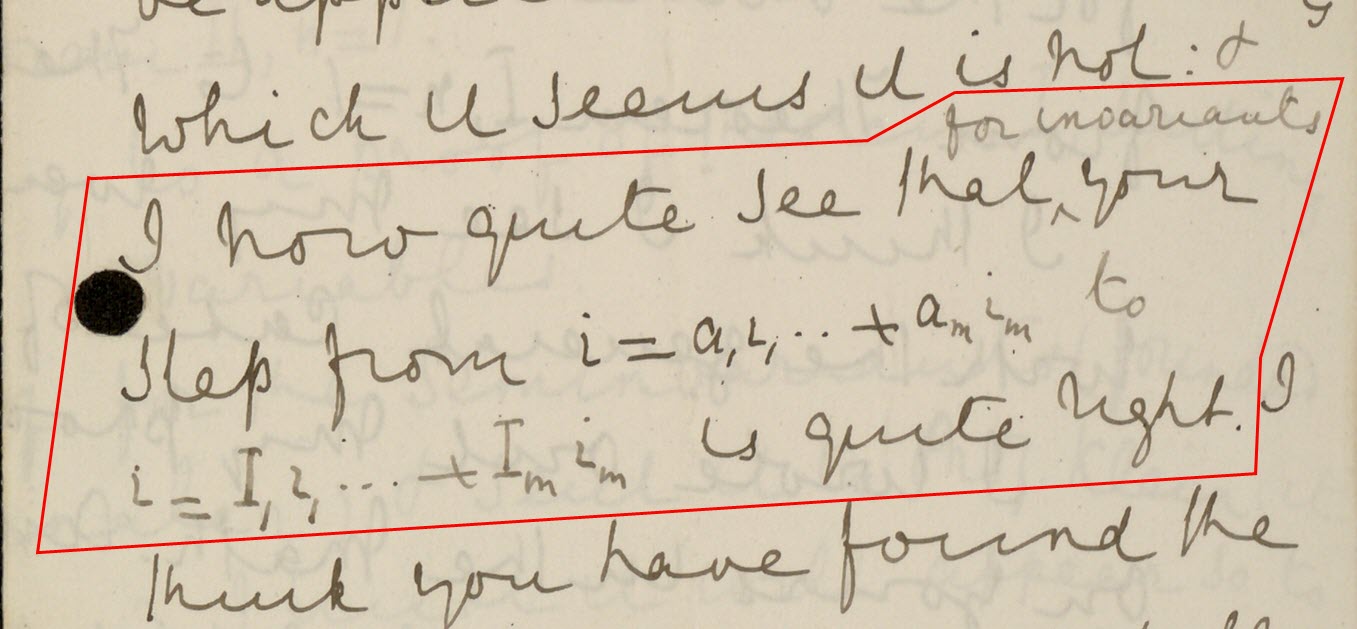 be app
which it seems it is not: &
for invariants
I now quite see that ‸ your
step from i = a₁i₁ ... + aₘiₘ to
i = I₁i₁ ... + Iₘiₘ is quite right. I
think you have found the